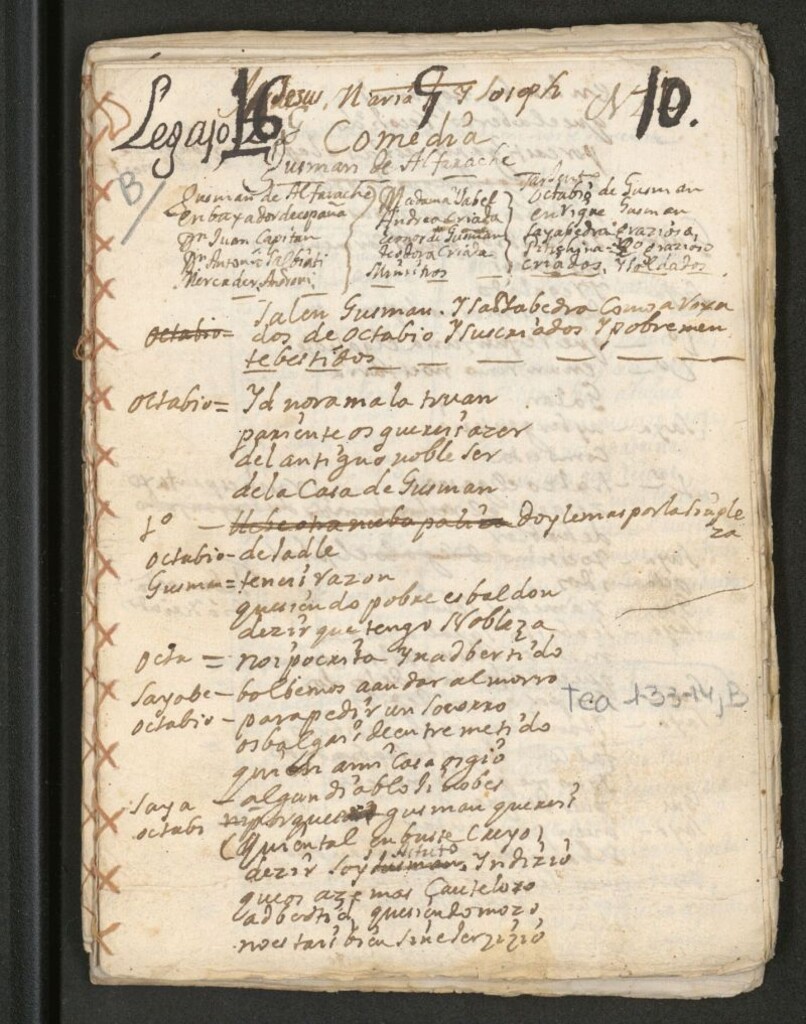 Jesus, Maria Y Joseph
Legajo 16 9 N 10.
Comedia
Gusman de Alfarache
B/
Gusman de Alfarache
enbaxador de españa
Dn Juan Capitan
Dn Antonio
Mercader Andronio
Madama Isabel
Andrea Criada
Leonor de Gusman
teodora Criada
Ministros
Octabio de Gusman
enrique Gusman
sayabedra graziosa
2º grazioso
criados, Y soldados
Salen Gusman. Y sayabedra Como
octabio= dos de octabio Y sus criados Y pobremen
te bestidos
octabio= Id noramala truan
pariente os quereis azer
del antiguo noble ser
de la Casa de Gusman
1º — doy le mas por la
za
octabio- dejadle
Gusman= teneis razon
que siendo pobre es baldon
dezir que tengo Nobleza
octa = no ipocrita Ynadbertido
sayabe- bolbemos a andar al morro
octabio- para pedir un socorro
os balgais de entremetido
quien a mi Casa os gio
saya - algun diablo
octabi porque gusman quereis
(que en tal enbuste Creyo)
dezir soys Yndizio
que os aze mas Cauteloso
adbertid, que siendo mozo
no estais bien sin exerzizio
Tea 1-33-14, B